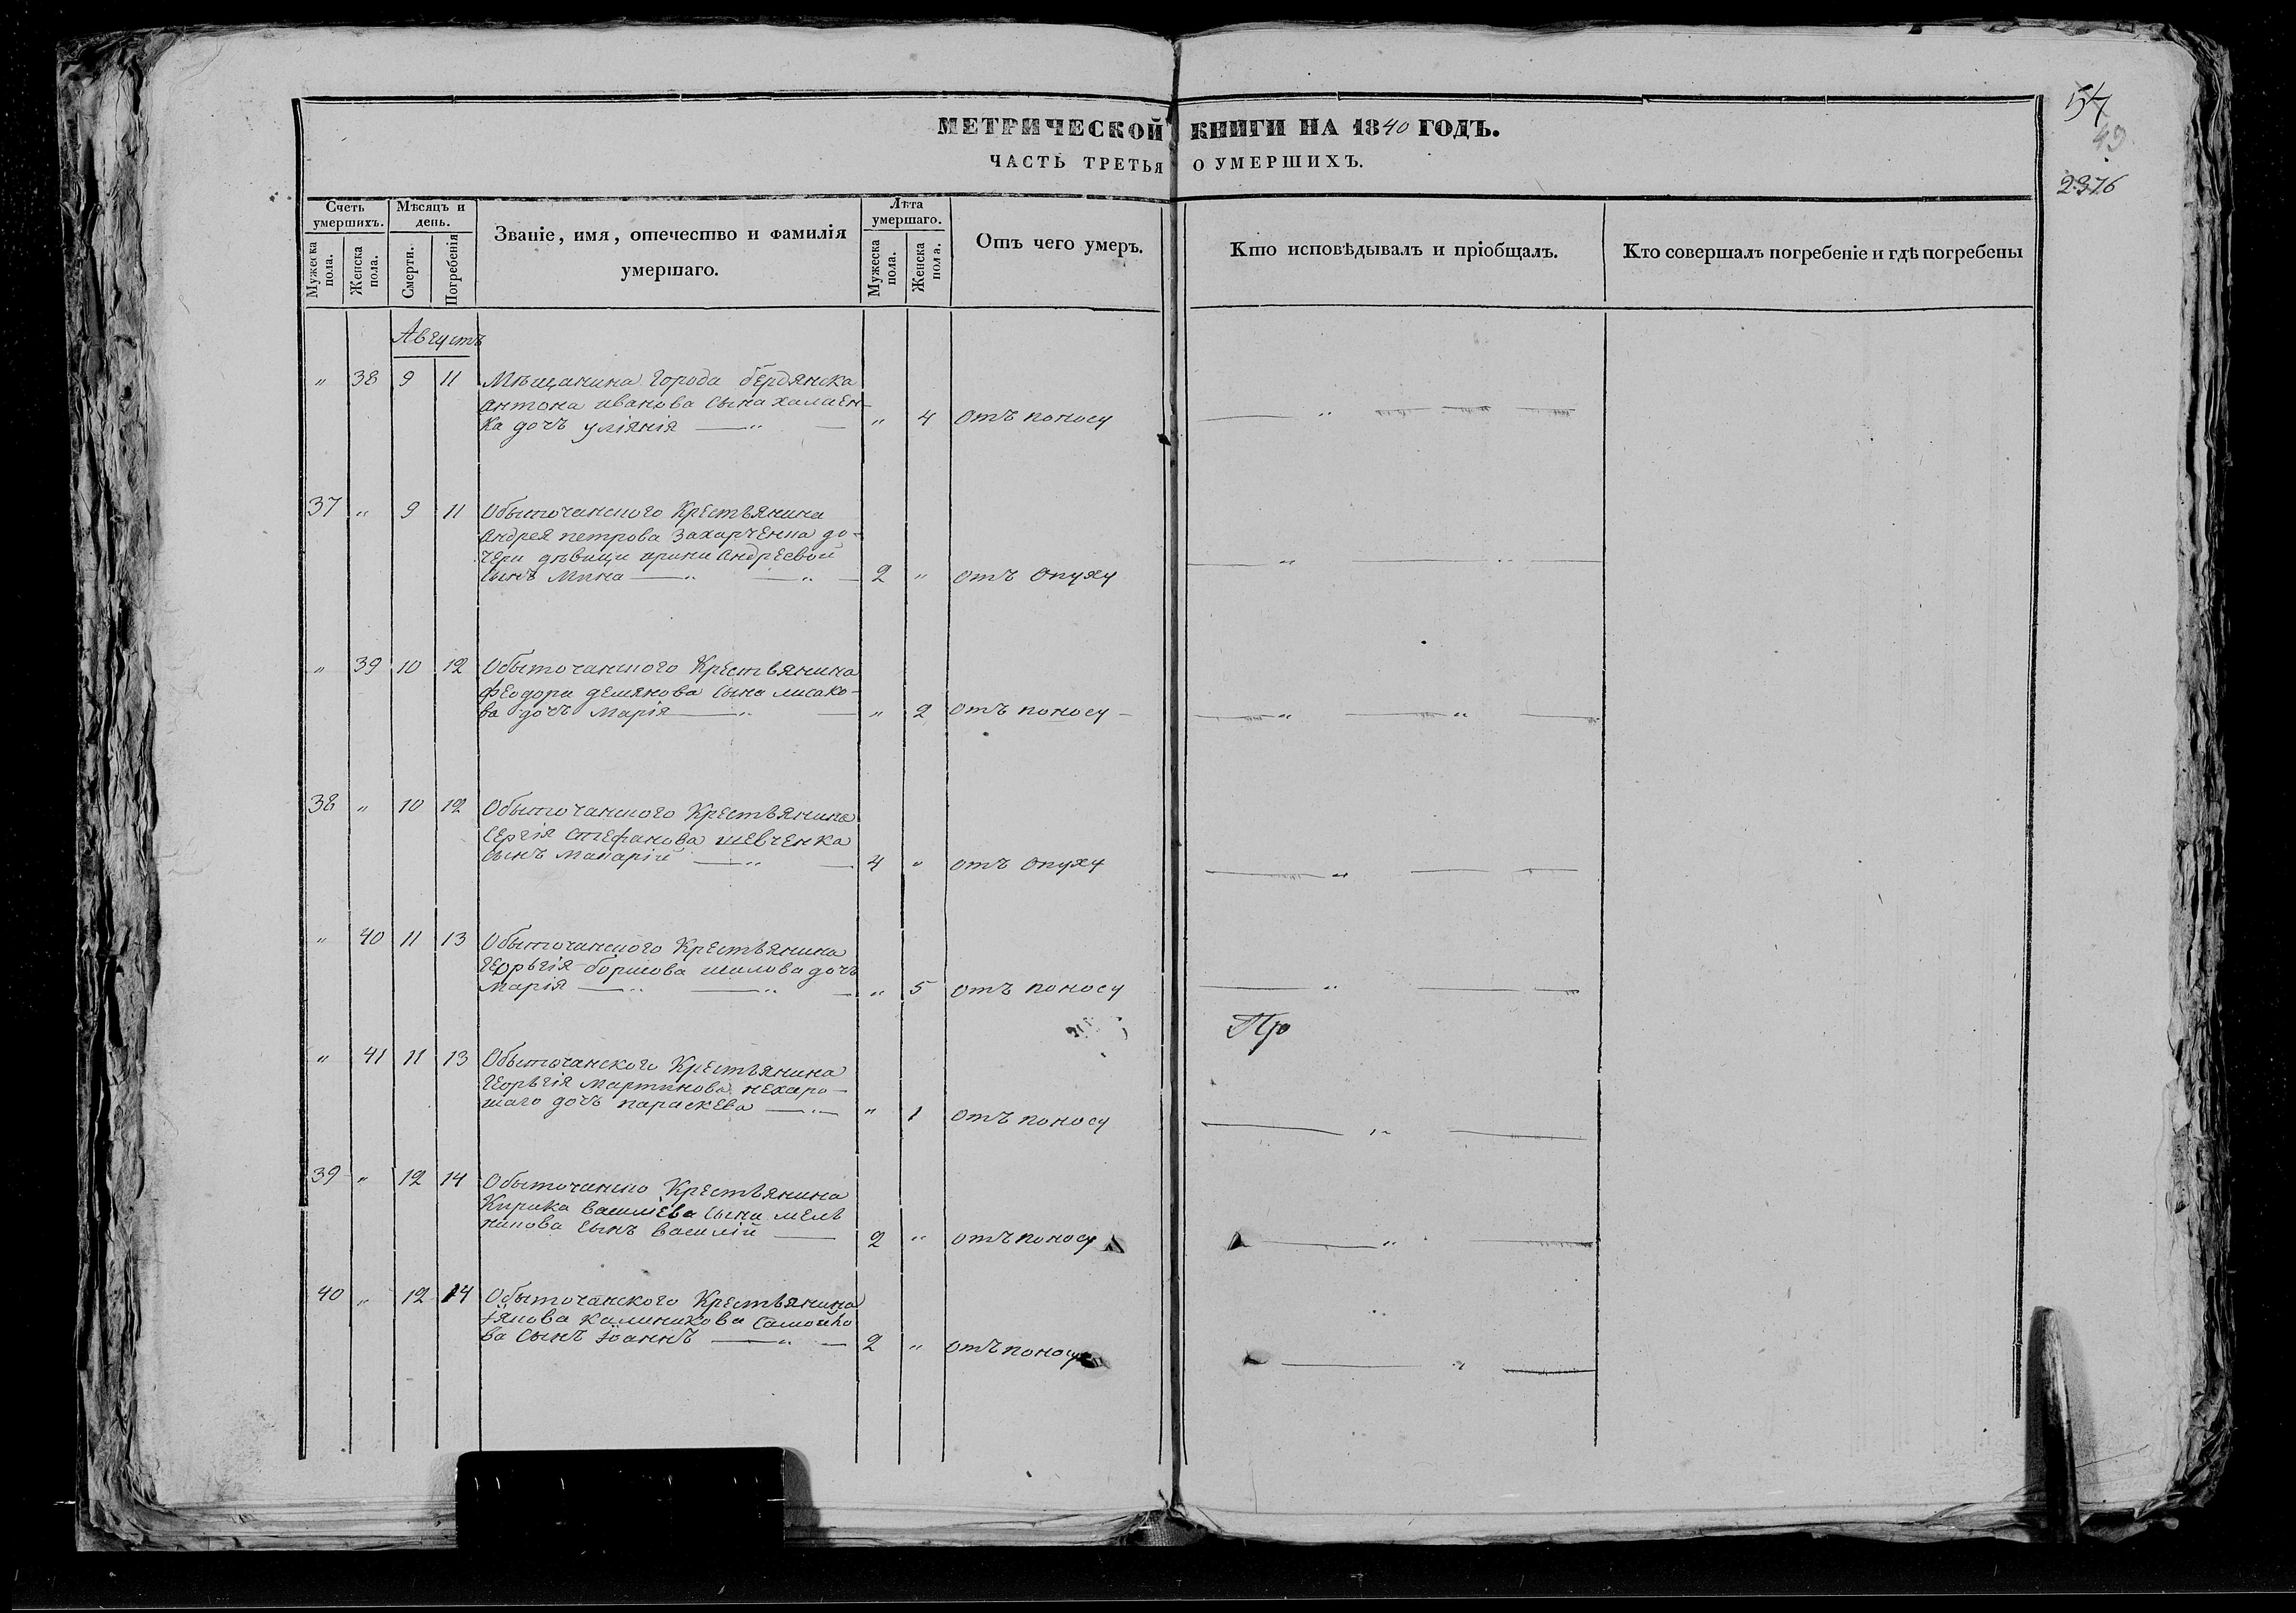 54
49
2376
МЕТРИЧЕСКОЙ КНИГИ НА 1840 ГОДЪ.
ЧАСТЬ ТРЕТЬЯ О УМЕРШИХЪ.
Счетъ умершихъ.
Мужеска пола.
Женска пола.
Мѣсяцъ и день.
Смерти.
Погребенія
Званіе, имя, отечество и фамилія
умершаго.
Лѣта умершаго.
Мужеска пола.
Женска пола.
Отъ чего умеръ.
Кто исповѣдывалъ и пріобщалъ.
Кто совершалъ погребеніе и гдѣ погребены
Августъ
" 38 9 11 Мѣщанина города бердянска
антона иванова сына халаен-
ка дочъ уліянія " " 4 отъ поносу "
37 " 9 11 Обыточанского Крестьянина
андрея петрова захарченка до-
чери дѣвици ирини андреевой
сынъ Мина " " 2 " отъ опуху " "
" 39 10 12 Обыточанского Крестьянина
феодора демянова сына лисако-
ва дочъ Марія " " 2 отъ поносу " "
38 " 10 12 Обыточанского Крестьянина
сергія стефанова шевченка
сынъ Макарій " 4 " отъ опуху "
" 40 11 13 Обыточанского Крестьянина
георьгія борисова шилова дочъ
Марія " " " 5 отъ поносу "
Пр
" 41 11 13 Обыточанского Крестьянина
георьгія Мартинова нехаро-
шаго дочъ параскева " " 1 отъ поносу "
39 " 12 14 Обыточанско Крестьянина
Кирика василіева сына мель
никова сынъ василій 2 " отъ поносу "
40 " 12 14 Обыточанского Крестьянина
іякова калиникова самойло
ва сынъ іоаннъ " 2 " отъ поносу "